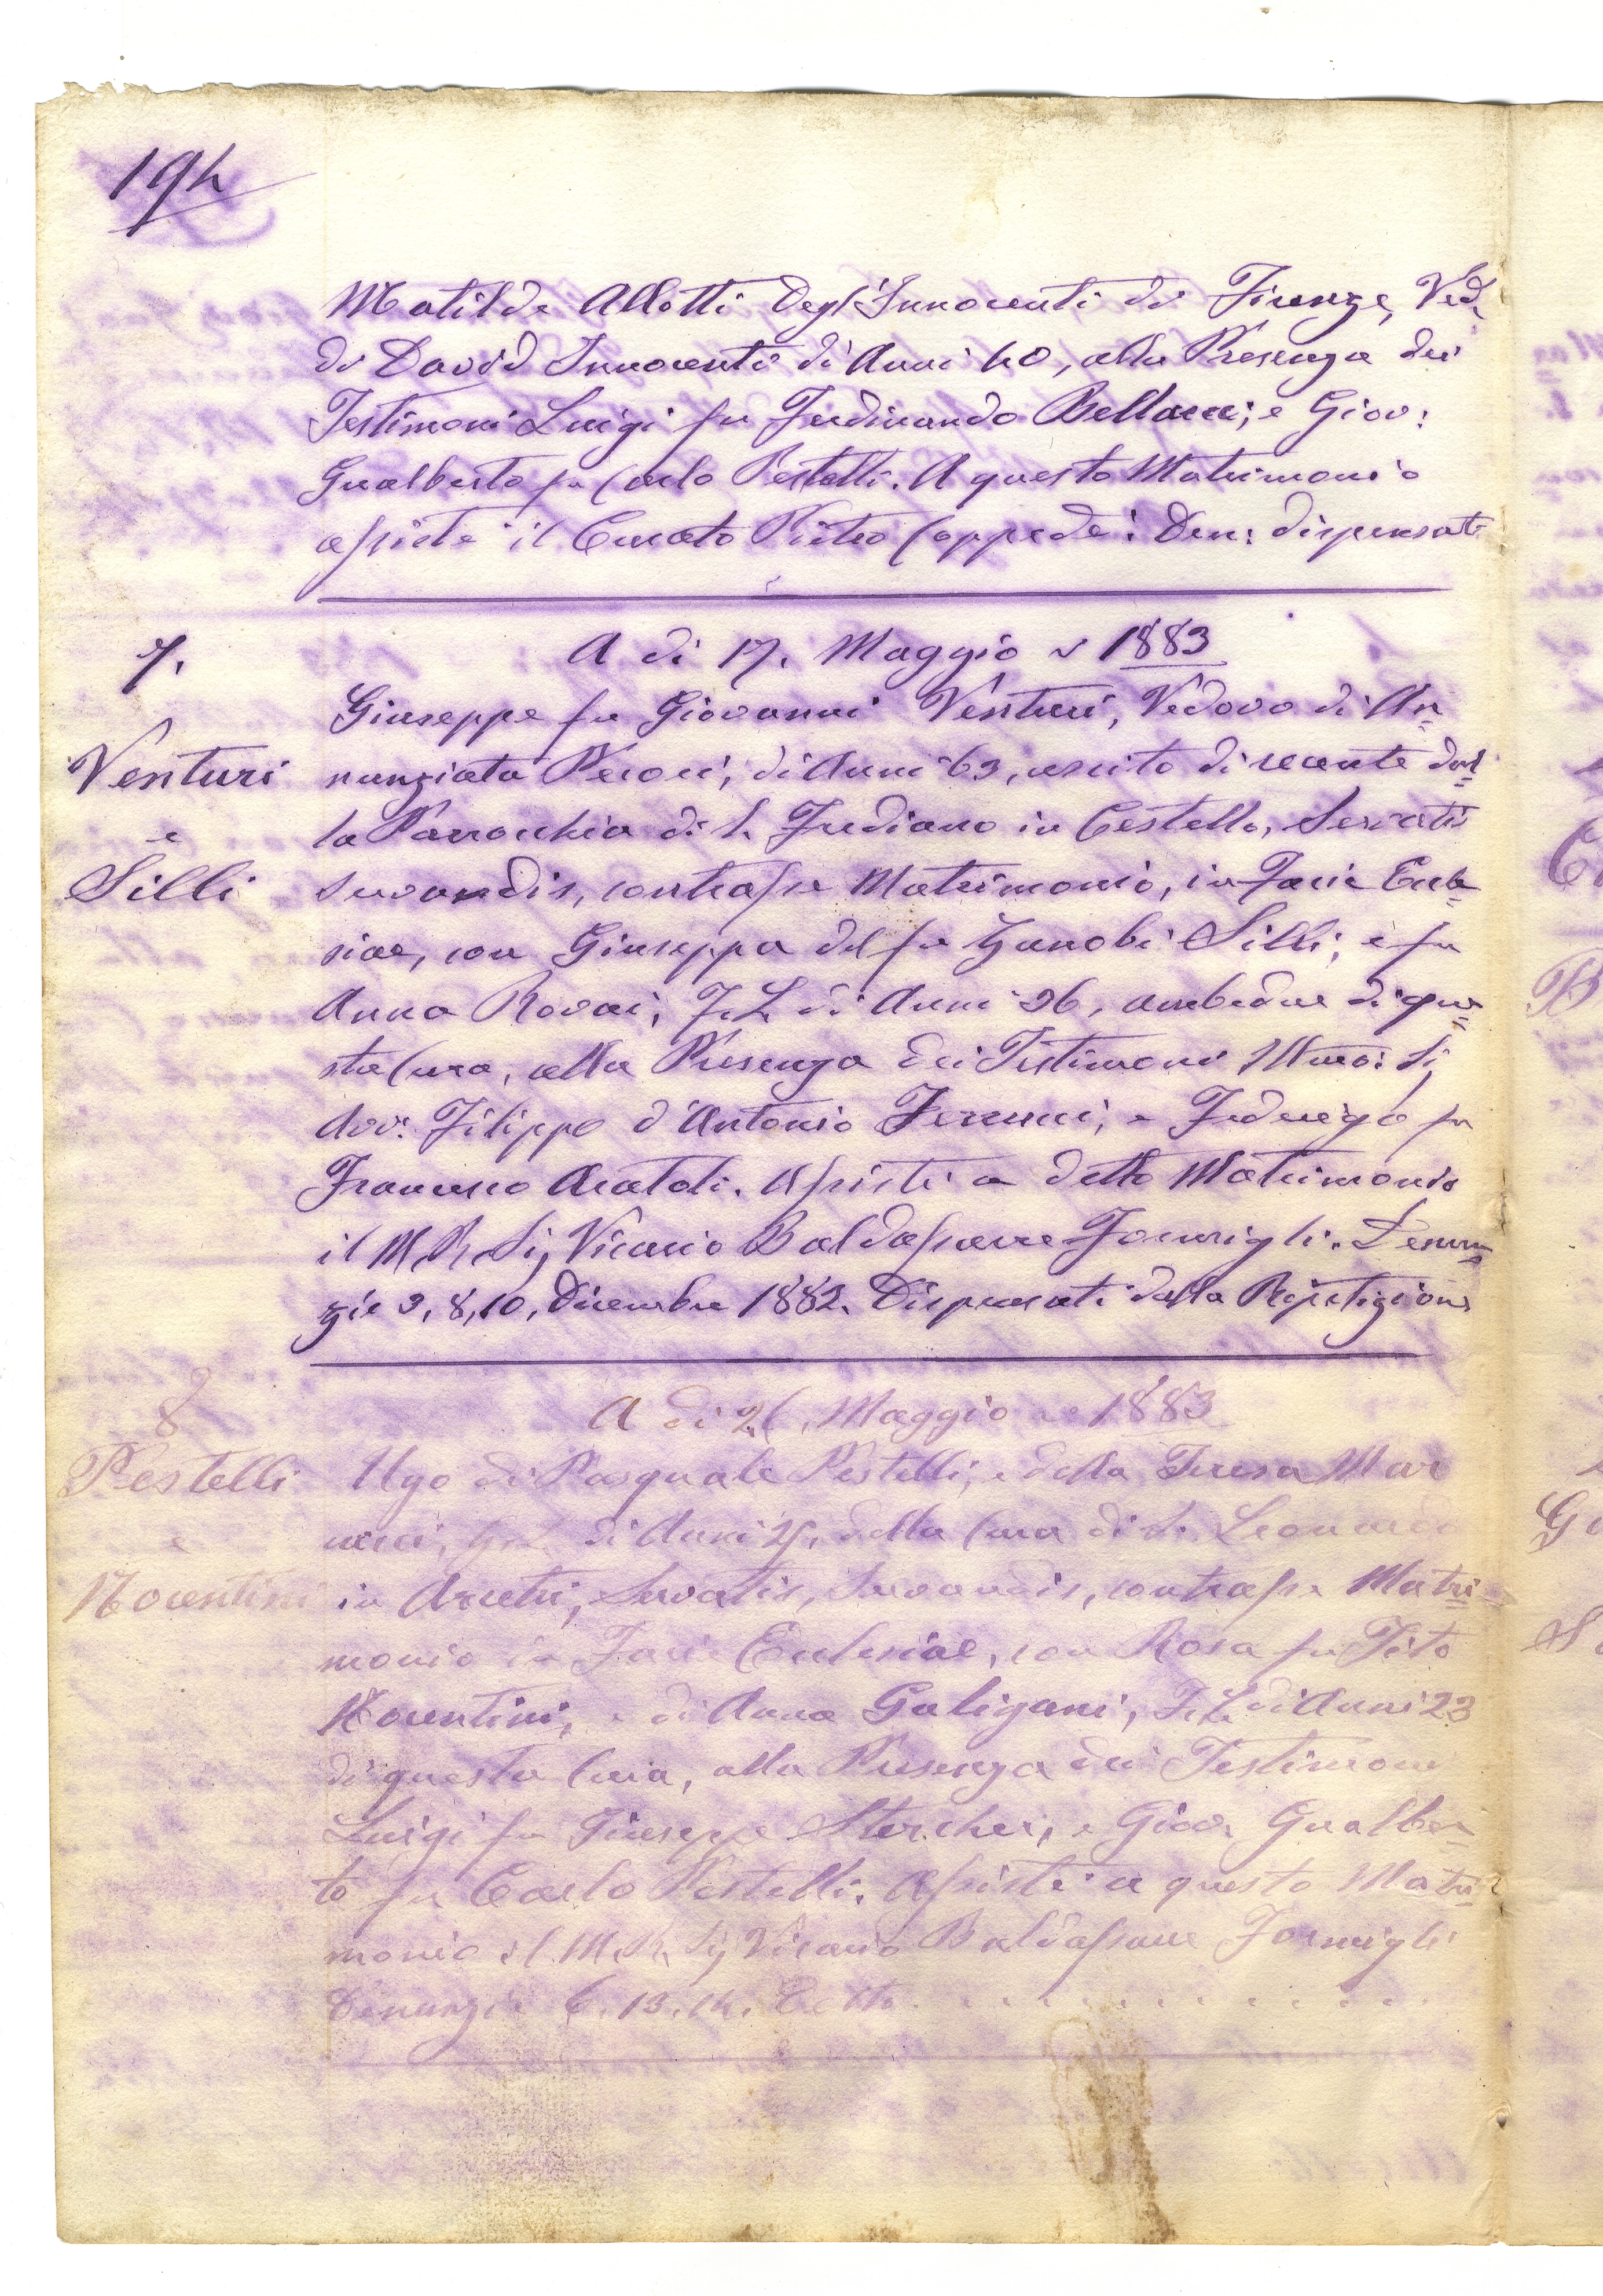 194
Matilde Allotti Degl'Innocenti di Firenze, Ved.
di David Innocenti di Anni 40, alla Presenza dei
Testimoni Luigi fu Ferdinando Bellacci; e Giov:
Gualberto fu Carlo Pestelli. A questo Matrimonio
assistè il Curato Pietro Cappedè: Den: dispensati
7.
A di 17. Maggio 1883
Venturi
e
Silli
Giuseppe fu Giovanni Venturi, Vedovo di An=
nunziata Pecori, di Anni 63, uscito di recente dal=
la Parrochia di S. Frediano in Cestello, Servatis
Servandis, contrasse Matrimonio, in Facie Eccle=
siae, con Giuseppa del fu Zanobi Silli; e fu
Anna Rovai, F. L. di Anni 36, ambedue di que=
sta Cura, alla Presenza dei Testimoni Illmo: Sig
Avv: Filippo d'Antonio Ferrucci; e Federigo fu
Francesco Aratoli. Assistè a detto Matrimonio
il M R Sig Vicario Baldassarre Formigli. Denun=
zie 3, 8, 10, Dicembre 1882. Dispensati dalla Ripetizione
8
A di 26. Maggio 1883
Pestelli
e
Nocentini
Ugo di Pasquale Pestelli, e della Teresa Mar
di Anni 27. della Cura di S. Leonardo
in Arcetri, Servatis, Servandis, contrasse Matri=
monio in Facie Ecclesiae, con Rosa fu Tito
Nocentini, e di Anna Galigani, F. L. di Anni 23
di questa Cura, alla Presenza dei Testimoni
Luigi fu Giuseppe Sterchei, e Giov. Gualber=
to fu Carlo Pestelli. Assistè a questo Matri=
monio il M. R. Sig Vicario Baldassarre Formigli
Denunzie 6. 13. 14. Detto